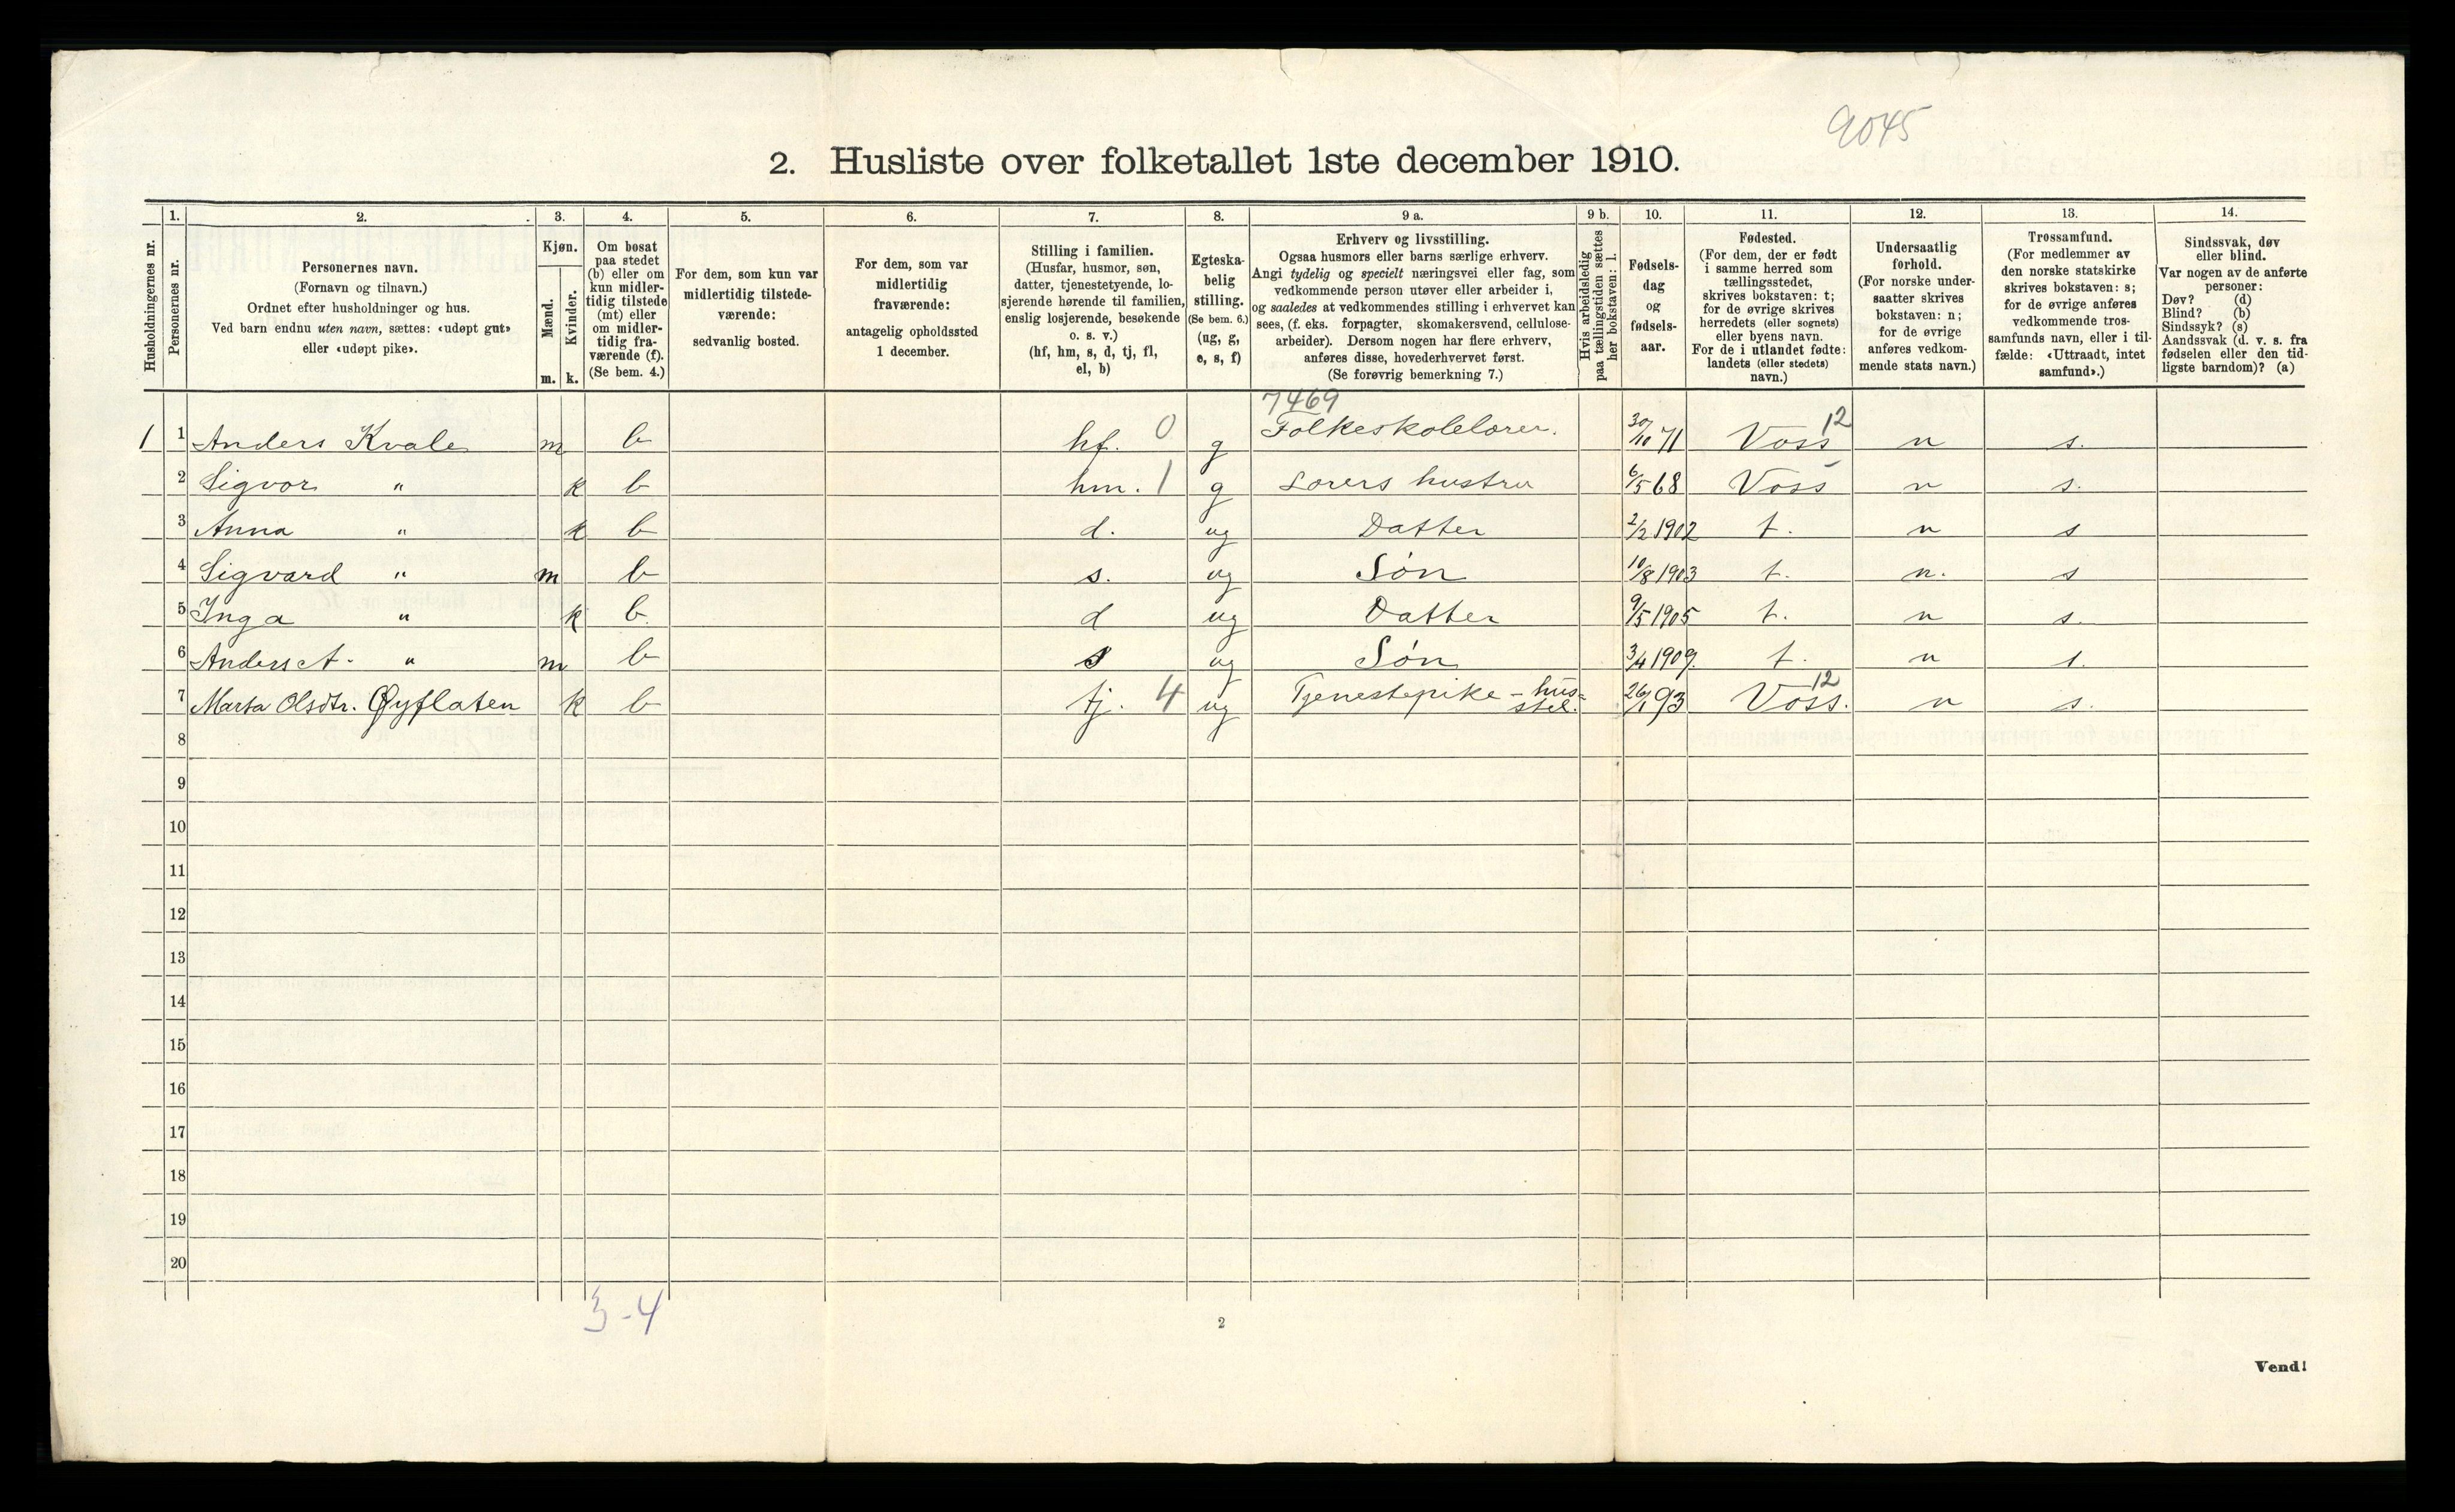 9045
2. Husliste over folketallet 1ste december 1910.
Husholdningernes nr.
1.
Personernes nr.
2.
Personernes navn.
(Fornavn og tilnavn.)
Ordnet efter husholdninger og hus.
Ved barn endnu uten navn, sættes: «udøpt gut»
eller «udøpt pike».
3.
Kjøn.
Mænd.
Kvinder.
m. k.
4.
Om bosat
paa stedet
(b) eller om
kun midler-
tidig tilstede
(mt) eller
om midler-
tidig fra-
værende (f).
(Se bem. 4.)
5.
For dem, som kun var
midlertidig tilstede-
værende:
sedvanlig bosted.
6.
For dem, som var
midlertidig
fraværende:
antagelig opholdssted
1 december.
7.
Stilling i familien.
(Husfar, husmor, søn,
datter, tjenestetyende, lo-
sjerende hørende til familien,
enslig losjerende, besøkende
o. s. v.)
(hf, hm, s, d, tj, fl,
el, b)
8.
Egteska-
belig
stilling.
(Se bem. 6.)
(ug, g,
e, s, f)
9 a.
Erhverv og livsstilling.
Ogsaa husmors eller barns særlige erhverv.
Angi tydelig og specielt næringsvei eller fag, som
vedkommende person utøver eller arbeider i,
og saaledes at vedkommendes stilling i erhvervet kan
sees, (f. eks. forpagter, skomakersvend, cellulose-
arbeider). Dersom nogen har flere erhverv,
anføres disse, hovederhvervet først.
(Se forøvrig bemerkning 7.)
9 b.
Hvis arbeidsledig
paa tællingstiden sættes
her bokstaven: l.
10.
Fødsels-
dag
og
fødsels-
aar.
11.
Fødested.
(For dem, der er født
i samme herred som
tællingsstedet,
skrives bokstaven: t;
for de øvrige skrives
herredets (eller sognets)
eller byens navn.
For de i utlandet fødte:
landets (eller stedets)
navn.)
12.
Undersaatlig
forhold.
(For norske under-
saatter skrives
bokstaven: n;
for de øvrige
anføres vedkom-
mende stats navn.)
13.
Trossamfund.
(For medlemmer av
den norske statskirke
skrives bokstaven: s;
for de øvrige anføres
vedkommende tros-
samfunds navn, eller i til-
fælde: «Uttraadt, intet
samfund».)
14.
Sindssvak, døv
eller blind.
Var nogen av de anførte
personer:
Døv? (d)
Blind? (b)
Sindssyk? (s)
Aandssvak (d. v. s. fra
fødselen eller den tid-
ligste barndom)? (a)
7469
1 1 Anders Kvale m b hf. 0 g Folkeskolelærer. 30/10 71 Voss 12 n s.
2 Sigvor " k b hm. 1 g Lærers hustru 6/5 68 Voss n s.
3 Anna " k b d. ug Datter 2/2 1902 t. n s
4 Sigvard " m b s. ug Søn 10/8 1903 t. n. s
5 Inga " k b. d ug Datter 9/5 1905 t. n s.
6 Anders A. " m b s ug Søn 3/4 1909. t. n s.
7 Marta Olsdtr. Øyflaten k b tj. 4 ug Tjenestepike - hus=
stel. 26/1 93 Voss. 12 n s.
8
9
10
11
12
13
14
15
16
17
18
19
20
3-4
2
Vend!